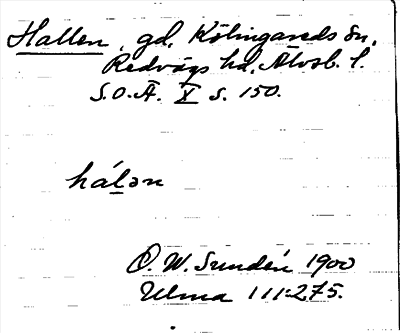 Hallen, gd, Kölingareds sn,
Redvägs hd, Älvsb. l.
S.O.Ä. X s. 150.
hálən
O. W. Sundén 1900
Ulma 111:275.